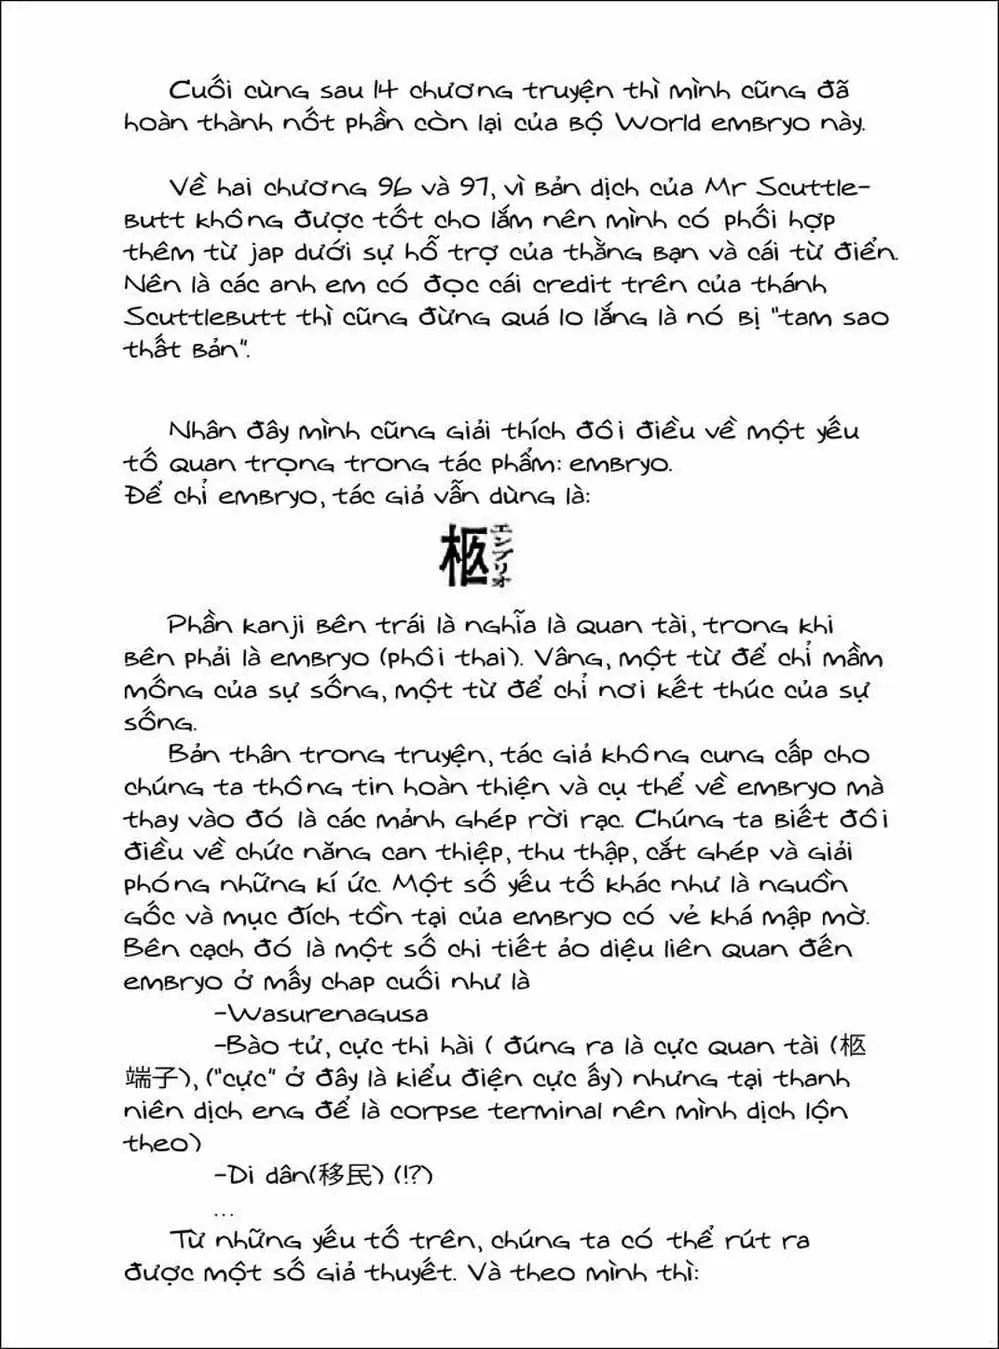 Cuối cùng sau 14 chương truyện thì mình cũng đã
hoàn thành nốt phần còn lại của bộ World embryo này.
Về hai chương 96 và 97, vì bản dịch của Mr Scuttle-
butt không được tốt cho lắm nên mình có phối hợp
thêm từ jap dưới sự hỗ trợ của thằng bạn và cái từ điển.
Nên là các anh em có đọc cái credit trên của thánh
Scuttlebutt thì cũng đừng quá lo lắng là nó bị "tam sao
thất bản".
Nhân đây mình cũng giải thích đôi điều về một yếu
tố quan trọng trong tác phẩm: embryo.
Để chỉ embryo, tác giả vẫn dùng là:
柩 エンブリオ
Phần kanji bên trái là nghĩa là quan tài, trong khi
bên phải là embryo (phôi thai). Vâng, một từ để chỉ mầm
mống của sự sống, một từ để chỉ nơi kết thúc của sự
sống.
Bản thân trong truyện, tác giả không cung cấp cho
chúng ta thông tin hoàn thiện và cụ thể về embryo mà
thay vào đó là các mảnh ghép rời rạc. Chúng ta biết đôi
điều về chức năng can thiệp, thu thập, cắt ghép và giải
phóng những kí ức. Một số yếu tố khác như là nguồn
gốc và mục đích tồn tại của embryo có vẻ khá mập mờ.
Bên cạch đó là một số chi tiết ảo diệu liên quan đến
embryo ở mấy chap cuối như là
-Wasurenagusa
-Bào tử, cực thi hài ( đúng ra là cực quan tài (柩
端子), ("cực" ở đây là kiểu điện cực ấy) nhưng tại thanh
niên dịch eng để là corpse terminal nên mình dịch lộn
theo)
-Di dân(移民) (!?)
...
Từ những yếu tố trên, chúng ta có thể rút ra
được một số giả thuyết. Và theo mình thì: